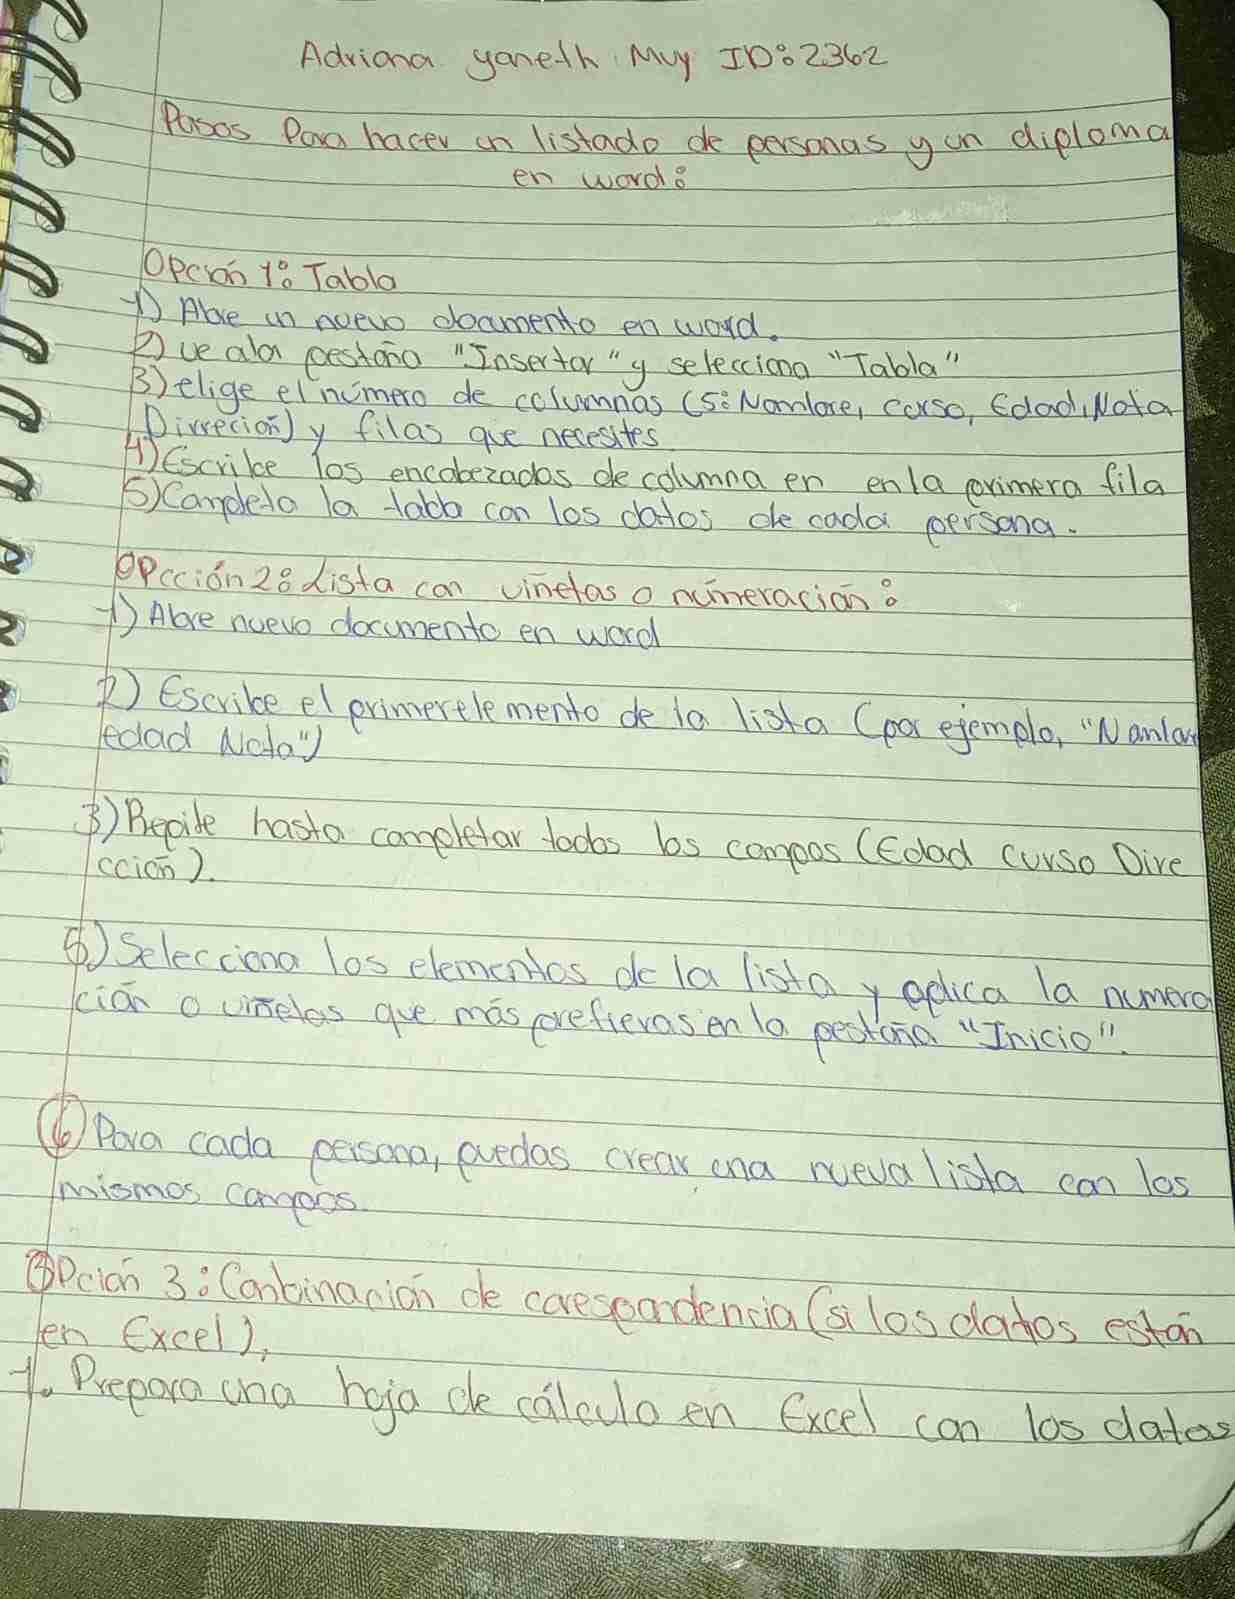 Adriana yaneth Muy ID:2362
Pasos Para hacer un listado de personas y un diploma
en word:
Opción 1: Tabla
1) Abre un nuevo documento en word.
2) ve a la pestaña "Insertar" y selecciona "Tabla"
3) elige el número de columnas (5: Nombre, curso, Edad, Nota
Dirrecion) y filas que necesites
4) Escribe los encabezados de columna en en la primera fila
5) Completa la tabla con los datos de cada persona.
OPcción 2: Lista con viñetas o númeración:
1) Abre nuevo documento en word
2) Escribe el primer elemento de la lista (por ejemplo, "Nombre
edad Nota")
3) Repite hasta completar todos los campos (Edad curso Dire
cción).
5) Selecciona los elementos de la lista y aplica la numera
ción o viñetas que más prefieras en la pestaña "Inicio".
6) Para cada persona, puedas crear una nueva lista con los
mismos campos.
OPción 3: Conbinación de corespondencia (si los datos están
en Excel),
1. Prepara una hoja de cálculo en Excel con los datos